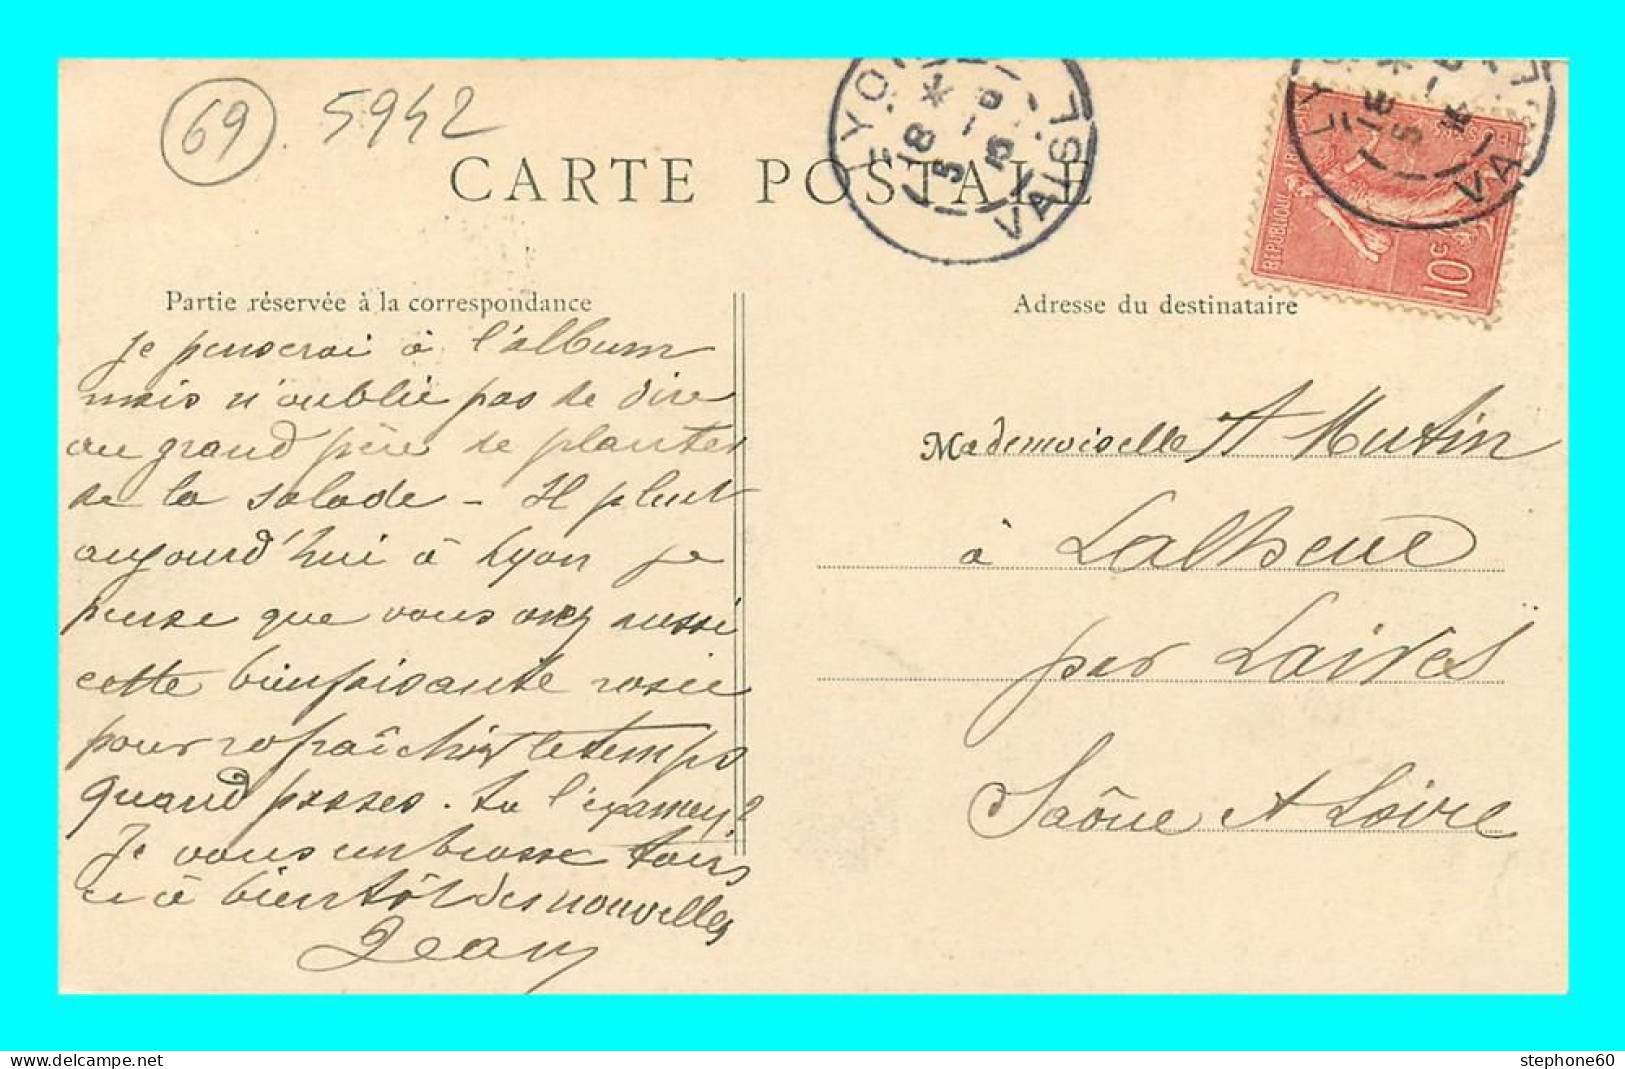 69 5942
CARTE POSTALE
LYO
18 *
5 -6
15
VAISE
LYO
18 *
5 -6
VAISE
REPUBLIQUE
10c
Partie réservée à la correspondance
Adresse du destinataire
Je penserai à l'album
mais n'oublie pas de dire
au grand père de planter
de la salade - Il pleut
aujourd'hui à Lyon je
pense que vous avez aussi
cette bienfaisante rosée
pour rafraîchir le temps
quand passes-tu l'examen?
Je vous embrasse tous
et à bientôt des nouvelles
Jean
Mademoiselle A Mutin
à Lalheue
par Laives
Saône et Loire
stephone60